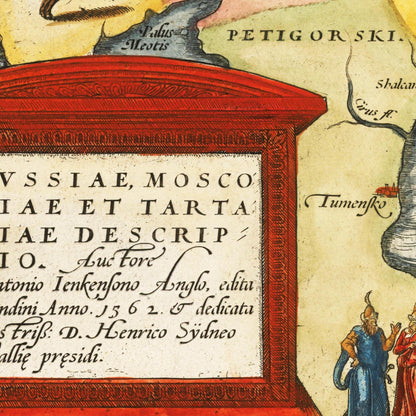 Palus
Meotis
PETIGORSKI.
Shalcan
Cirus fl.
Tumensko
VSSIAE, MOSCO
IAE ET TARTA
IAE DESCRIP-
IO. Auctore
ntonio Ienkensono Anglo, edita
ndini Anno. 1562. & dedicata
striß: D. Henrico Sÿdneo
allię pręsidi.